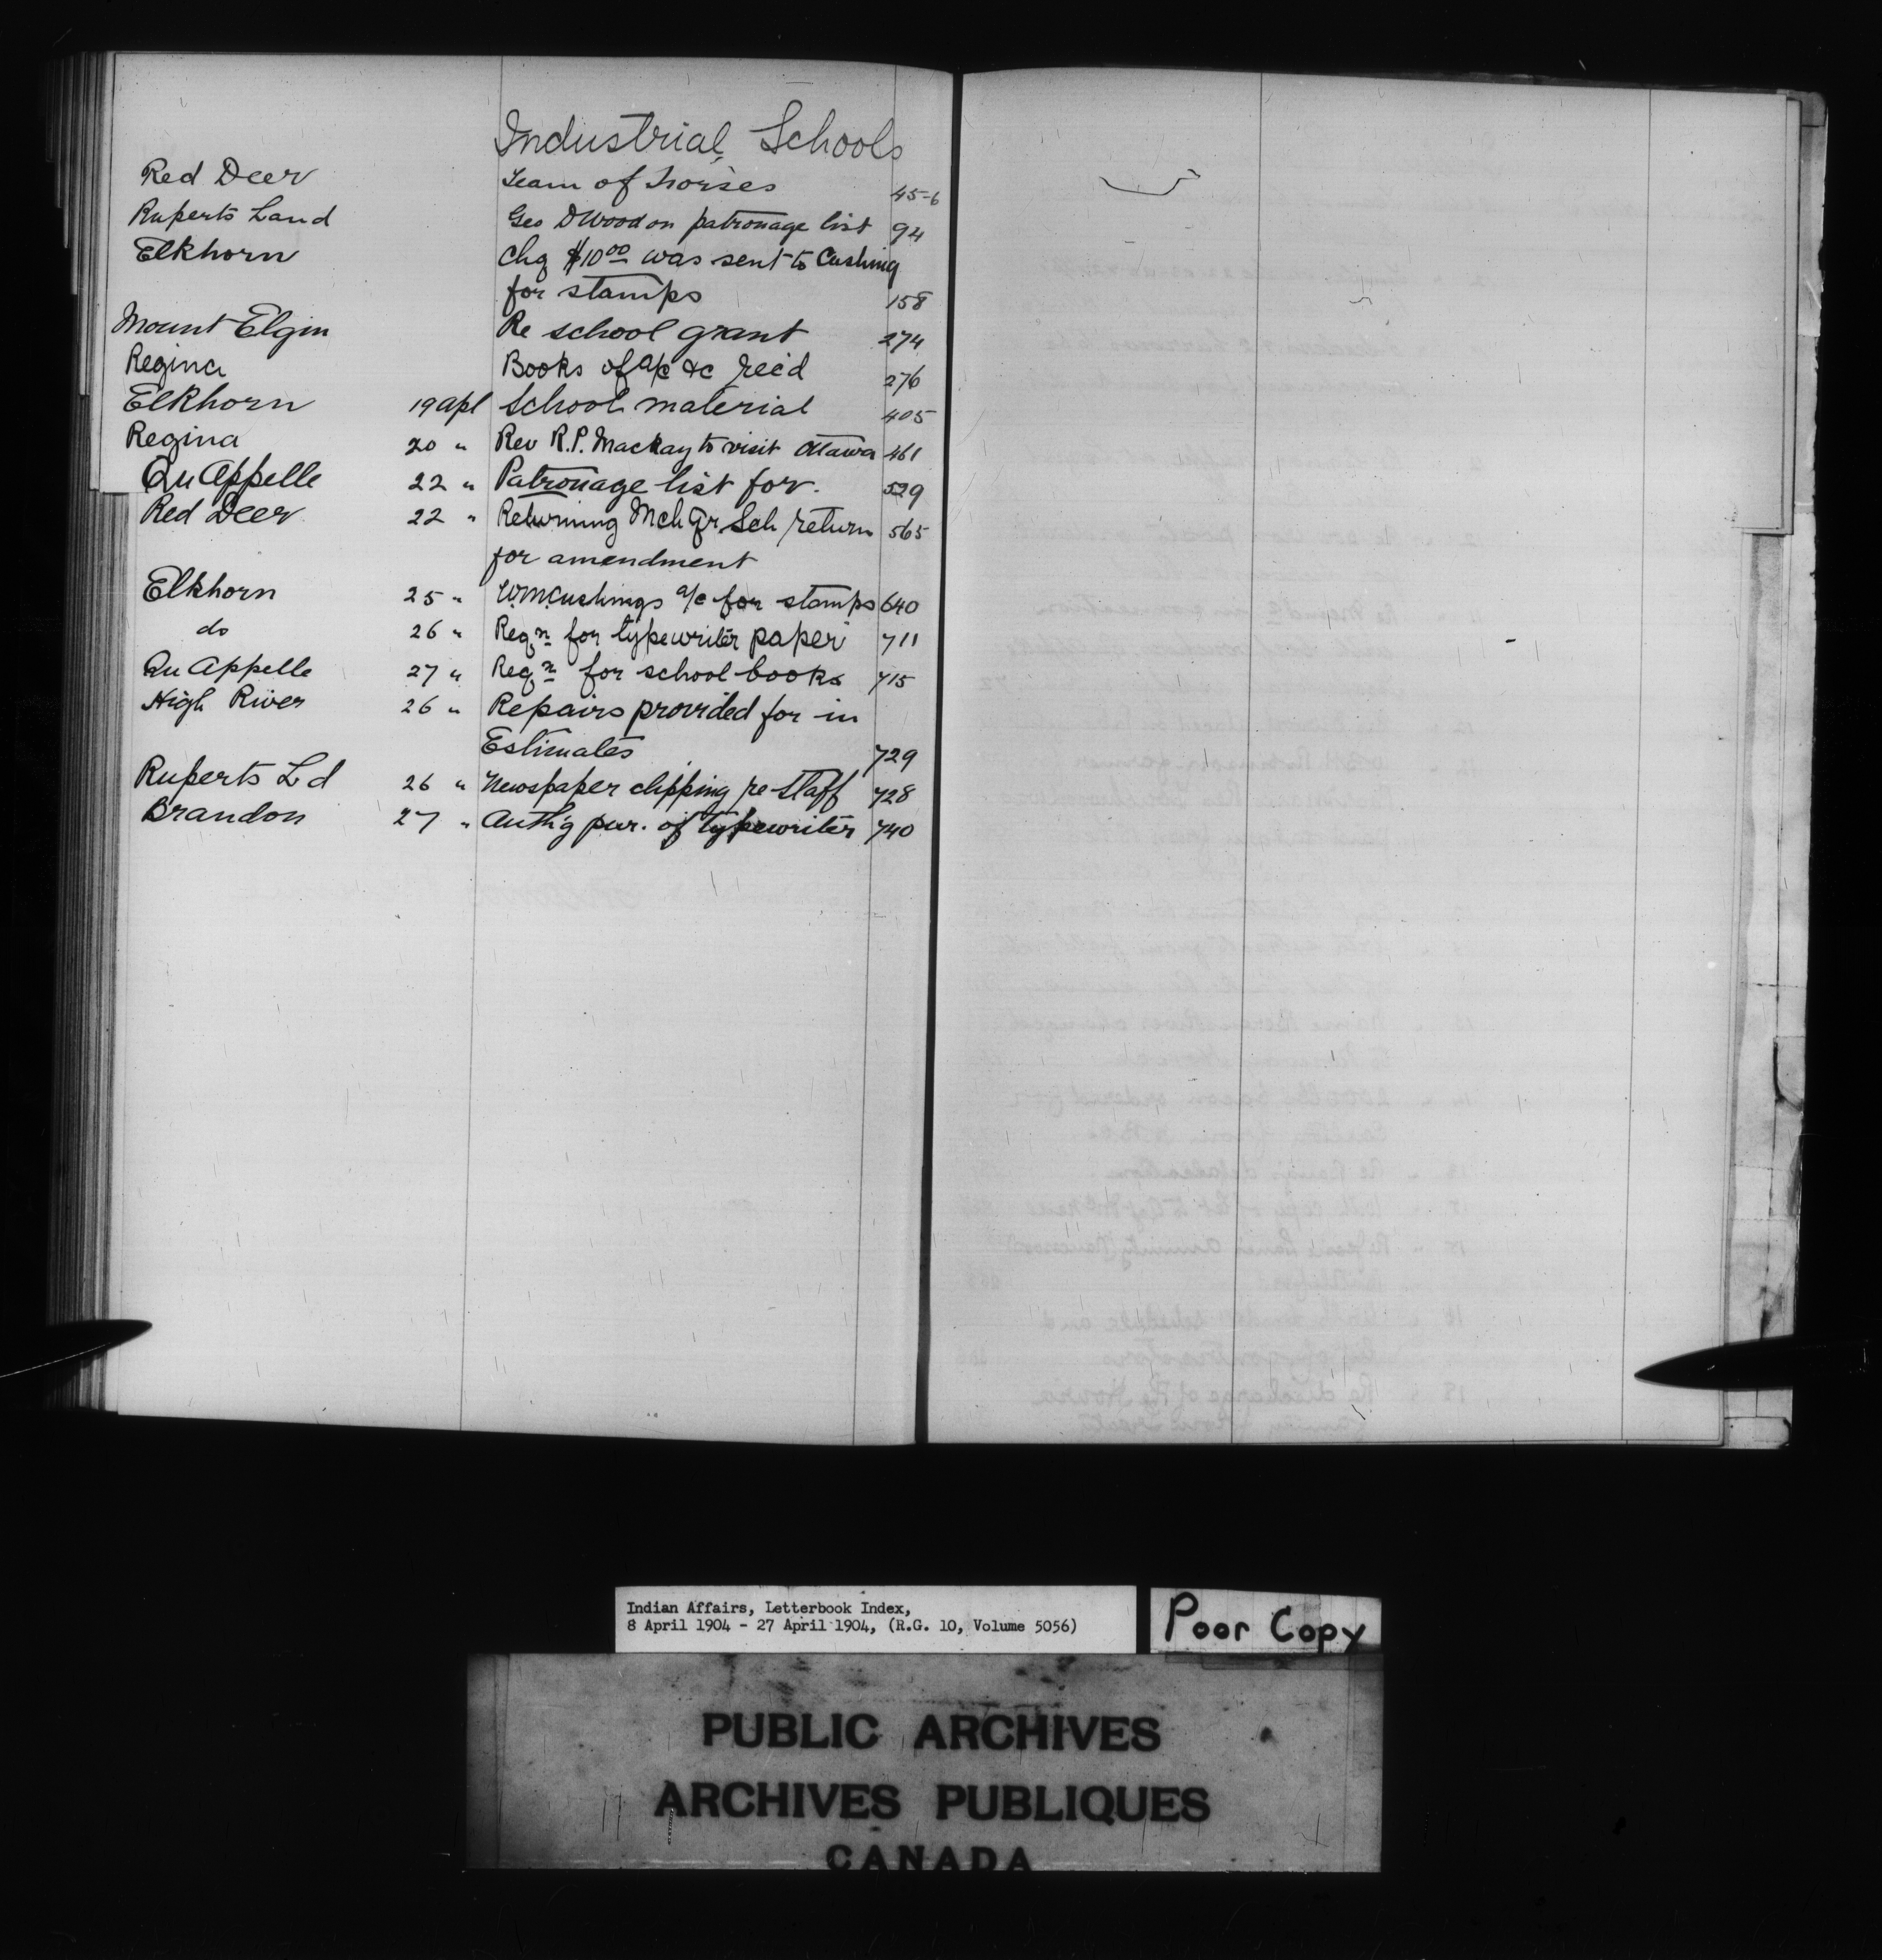 Industrial Schools
Red Deer Team of horses 45-6
Ruperts Land Geo D Wood on patronage list 94
Elkhorn Chq $10 00 was sent to Cushing
for stamps 158
Mount Elgin Re school grant 274
Regina Books of a/c &c rec'd 276
Elkhorn 19 Apl School material 405
Regina 20 " Rev R.P. Mackay to visit Ottawa 461
Qu Appelle 22 " Patronage list for. 529
Red Deer 22 " Returning Mch Qr Sch return 565
for amendment
Elkhorn 25 " W.M. Cushings a/c for stamps 640
do 26 " Reqn for typewriter paper 711
Qu Appelle 27 " Reqn for school books 715
High River 26 " Repairs provided for in
Estimates 729
Ruperts Ld 26 " Newspaper clipping re staff 728
Brandon 27 " Auth'g pur. of typewriter 740
Indian Affairs, Letterbook Index,
8 April 1904 - 27 April 1904, (R.G. 10, Volume 5056)
Poor Copy
PUBLIC ARCHIVES
ARCHIVES PUBLIQUES
CANADA